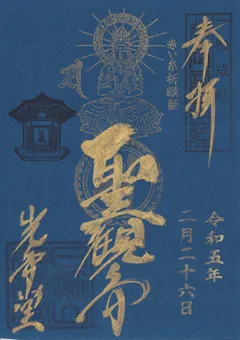 奉拝
赤い糸祈願祭
聖観音
令和五年
二月二十六日